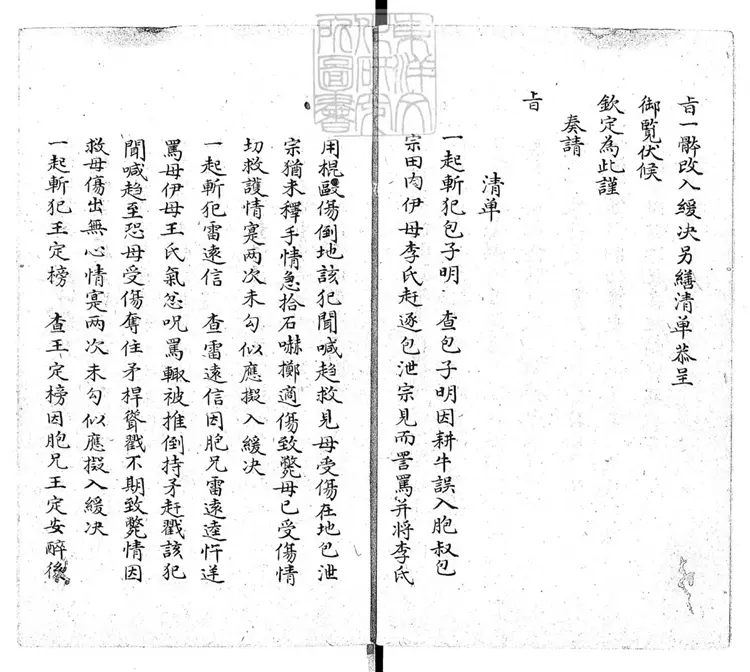 旨一幷改入緩决另繕清单恭呈
御覧伏候
欽定為此謹
奏請
旨
清单
一起斬犯包子明 查包子明因耕牛誤入胞叔包
宗田内伊母李氏赶逐包泄宗見而詈罵并将李氏
用棍毆傷倒地該犯聞喊趋救見母受傷在地包泄
宗猶未釋手情急拾石嚇擲適傷致斃母已受傷情
切救護情寔两次未勾似應擬入緩决
一起斬犯雷遠信 查雷遠信因胞兄雷遠逵忤逆
罵母伊母王氏氣忿咒罵輙被推倒持矛赶戳該犯
聞喊趋至恐母受傷奪住矛桿聳戳不期致斃情因
救母傷出無心情寔两次未勾似應擬入緩决
一起斬犯王定榜 查王定榜因胞兄王定安醉後
東洋文
化研究
所圖書